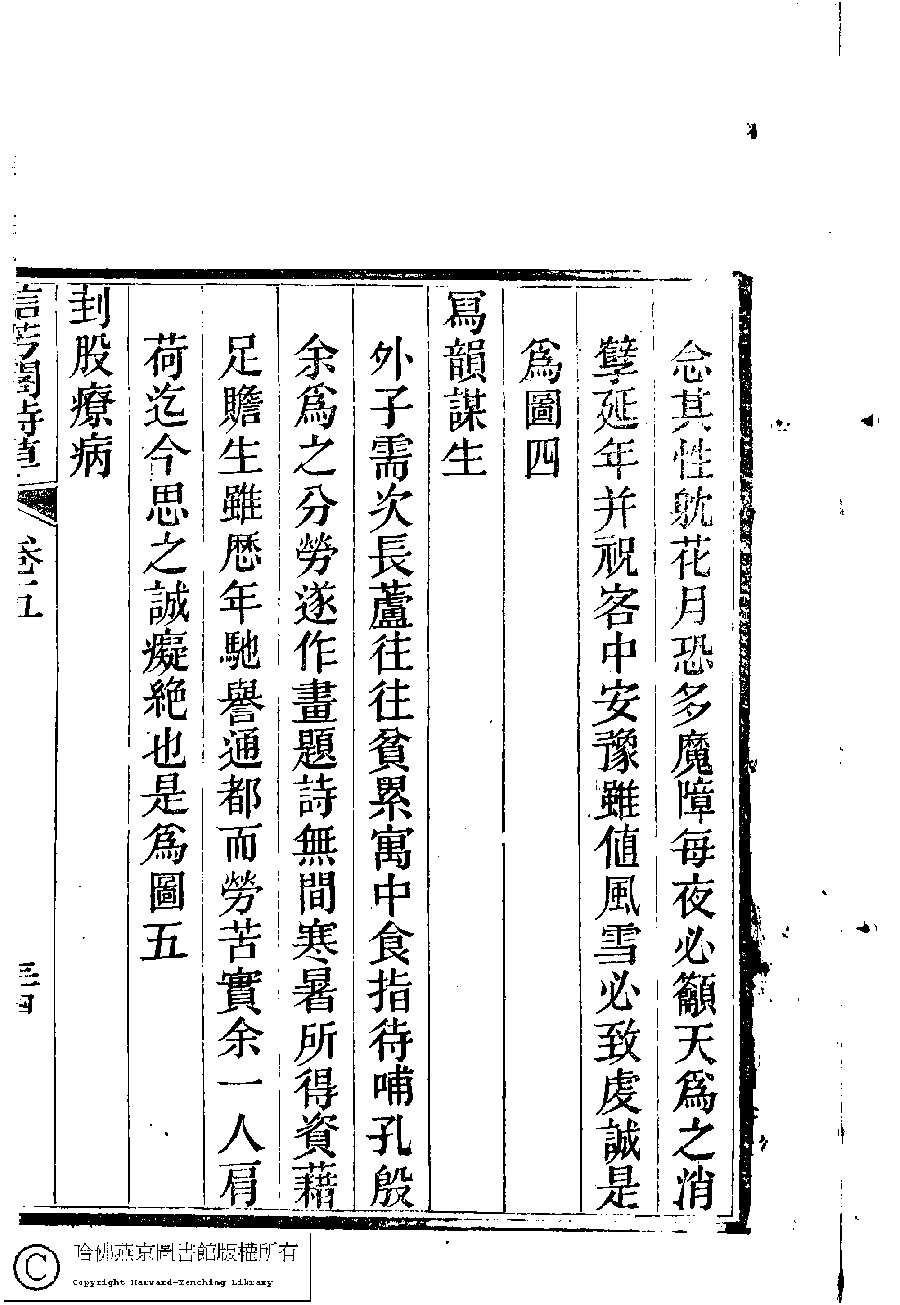 念其性躭花月恐多魔障每夜必籲天爲之消
孽延年并祝客中安豫雖值風雪必致虔誠是
爲圖四
寫韻謀生
外子需次長蘆往往貧累寓中食指待哺孔殷
余爲之分勞遂作畫題詩無間寒暑所得資藉
足贍生雖歷年馳譽通都而勞苦實余一人肩
荷迄今思之誠癡絕也是爲圖五
刲股療病
信芳閣詩草
卷五
三四
哈佛燕京圖書館版權所有
Copyright Harvard-Yenching Library